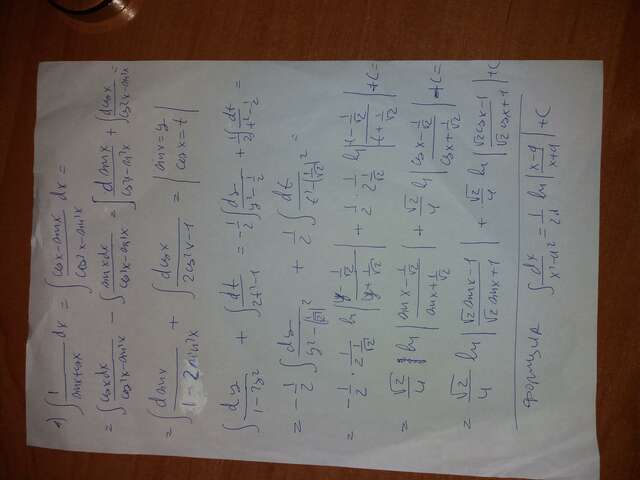 1) ∫ 1/(sinx+cosx) dx = ∫ (cosx-sinx)/(cos²x-sin²x) dx =
= ∫ cosxdx/(cos²x-sin²x) - ∫ sinxdx/(cos²x-sin²x) = ∫ dsinx/(cos²x-sin²x) + ∫ dcosx/(cos²x-sin²x) =
= ∫ dsinx/(1-2sin²x) + ∫ dcosx/(2cos²x-1) = | sinx=y cosx=t |
∫ dy/(1-2y²) + ∫ dt/(2t²-1) = -1/2 ∫ dy/(y²-1/2) + 1/2 ∫ dt/(t²-1/2) =
= -1/2 ∫ dy/(y²-(1/√2)²) + 1/2 ∫ dt/(t²-(1/√2)²) =
= -1/2 · 1/(2 1/√2) ln |(y-1/√2)/(y+1/√2)| + 1/2 · 1/(2 1/√2) ln |(t-1/√2)/(t+1/√2)| + C =
= √2/4 ln |(sinx-1/√2)/(sinx+1/√2)| + √2/4 ln |(cosx-1/√2)/(cosx+1/√2)| + C =
= √2/4 ln |(√2sinx-1)/(√2sinx+1)| + √2/4 ln |(√2cosx-1)/(√2cosx+1)| + C
формула ∫ dx/(x²-a²) = 1/2a ln |(x-a)/(x+a)| + C